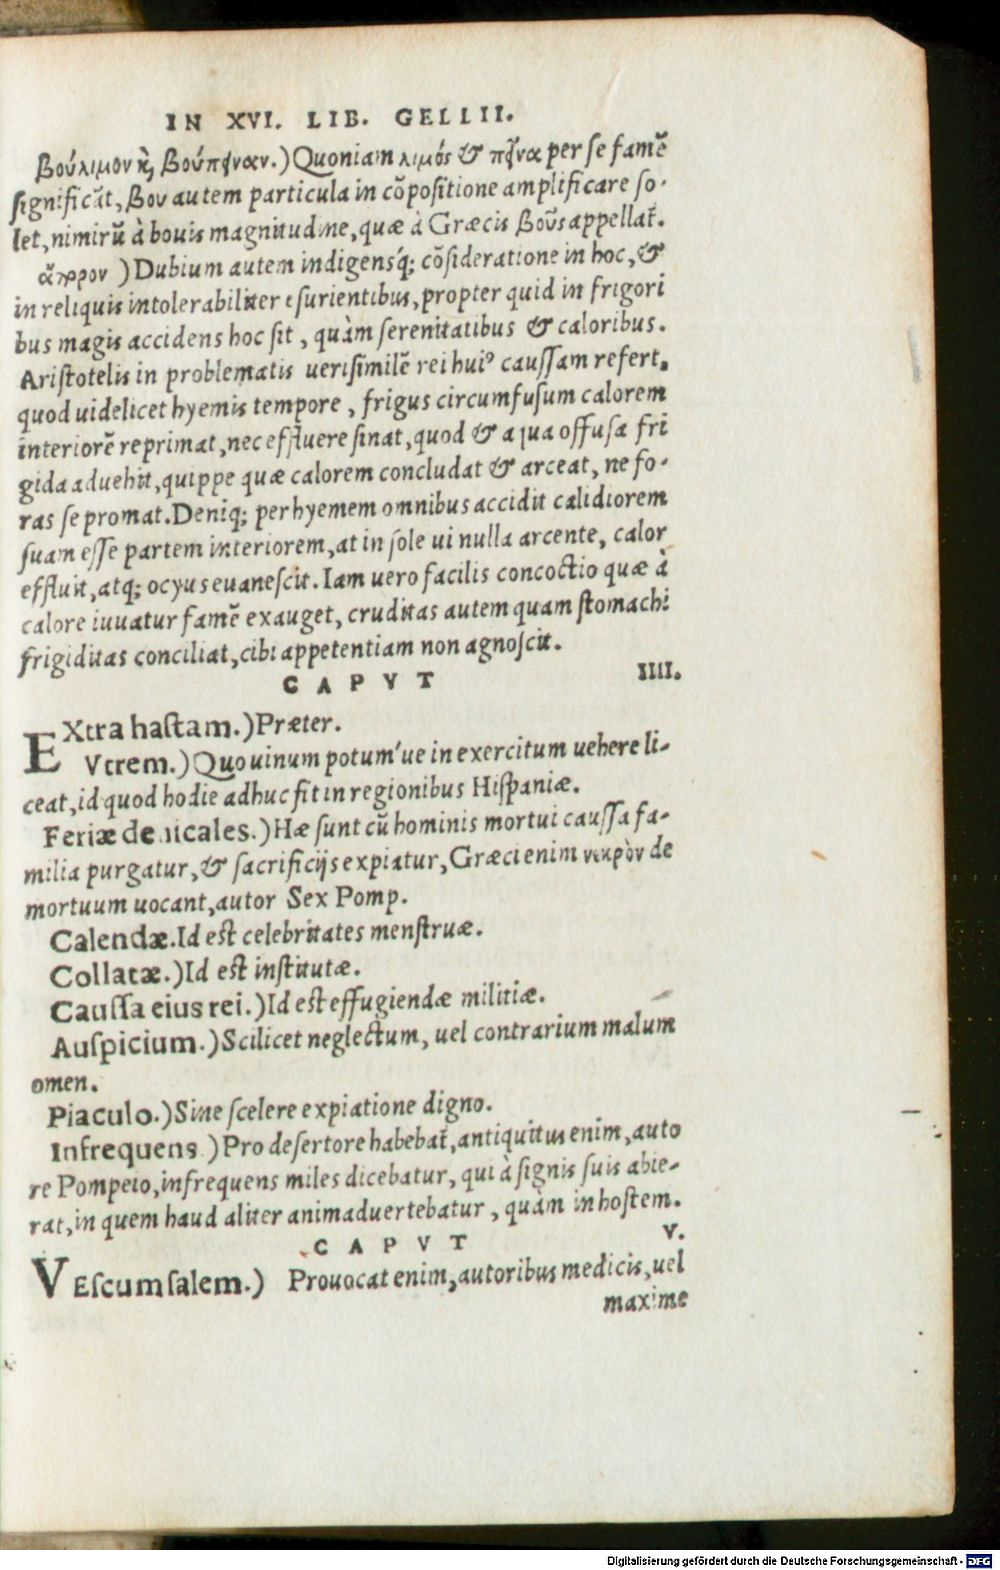 IN XVI. LIB. GELLII.
βούλιμον ϗ βούπειναν.) Quoniam λιμός & πεῖνα per se famẽ
significãt, βου autem particula in cõpositione amplificare so-
let, nimirũ à bouis magnitudine, quæ à Græcis βοῦς appellat̃.
ἄπορον ) Dubium autem indigensq́; cõsideratione in hoc, &
in reliquis intolerabiliter esurientibus, propter quid in frigori
bus magis accidens hoc sit, quàm serenitatibus & caloribus.
Aristotelis in problematis uerisimilẽ rei huiꝰ caussam refert.
quod uidelicet hyemis tempore, frigus circumfusum calorem
interiorẽ reprimat, nec effluere sinat, quod & aqua offusa fri
gida aduehit, quippe quæ calorem concludat & arceat, ne fo-
ras se promat. Deniq; per hyemem omnibus accidit calidiorem
suam esse partem interiorem, at in sole ui nulla arcente, calor
effluit, atq; ocyus euanescit. Iam uero facilis concoctio quæ à
calore iuuatur famẽ exauget, cruditas autem quam stomachi
frigiditas conciliat, cibi appetentiam non agnoscit.
CAPVT IIII.
EXtra hastam.) Præter.
Vtrem.) Quo uinum potum'ue in exercitum uehere li-
ceat, id quod hodie adhuc fit in regionibus Hispaniæ.
Feriæ denicales.) Hæ sunt cũ hominis mortui caussa fa-
milia purgatur, & sacrificijs expiatur, Græci enim νεκρὸν de
mortuum uocant, autor Sex Pomp.
Calendæ. Id est celebritates menstruæ.
Collatæ.) Id est institutæ.
Caussa eius rei.) Id est effugiendæ militiæ.
Auspicium.) Scilicet neglectum, uel contrarium malum
omen.
Piaculo.) Sine scelere expiatione digno.
Infrequens.) Pro desertore habebat̃, antiquitus enim, auto
re Pompeio, infrequens miles dicebatur, qui à signis suis abie-
rat, in quem haud aliter animaduertebatur, quàm in hostem.
CAPVT V.
VEscum salem.) Prouocat enim, autoribus medicis, uel
maxime
Digitalisierung gefördert durch die Deutsche Forschungsgemeinschaft - DFG